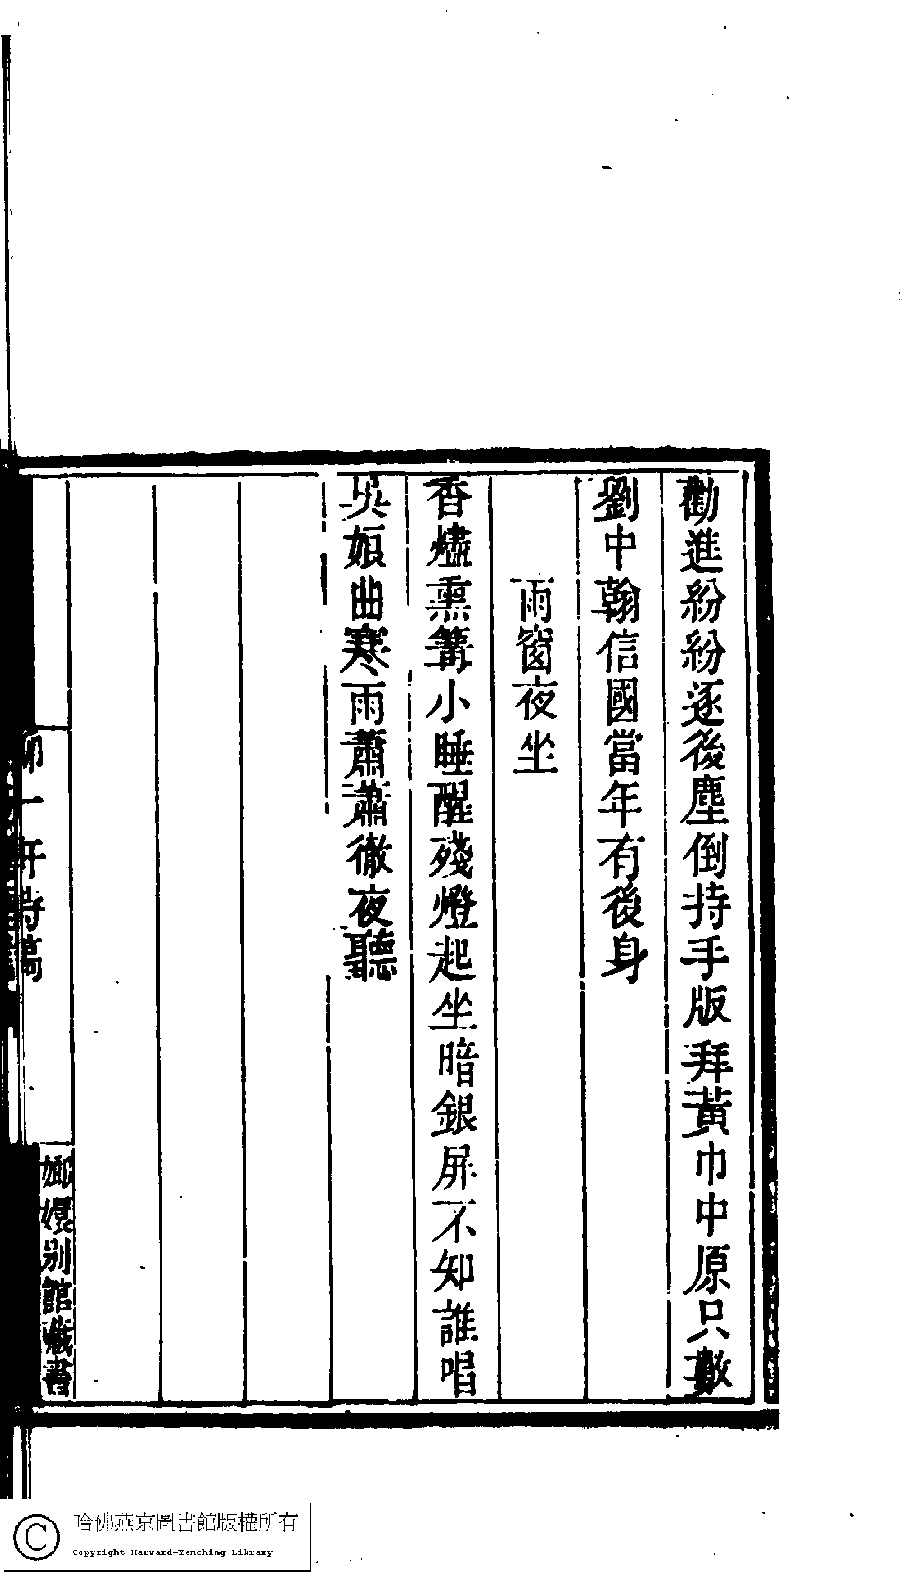 勸進紛紛逐後塵倒持手版拜黃巾中原只數
劉中翰信國當年有後身
雨窗夜坐
香燼熏篝小睡醒殘燈起坐暗銀屏不知誰唱
吳娘曲寒雨蕭蕭徹夜聽
一軒詩稿
嫏嬛別館藏書
哈佛燕京圖書館版權所有
Copyright Harvard-Yenching Library